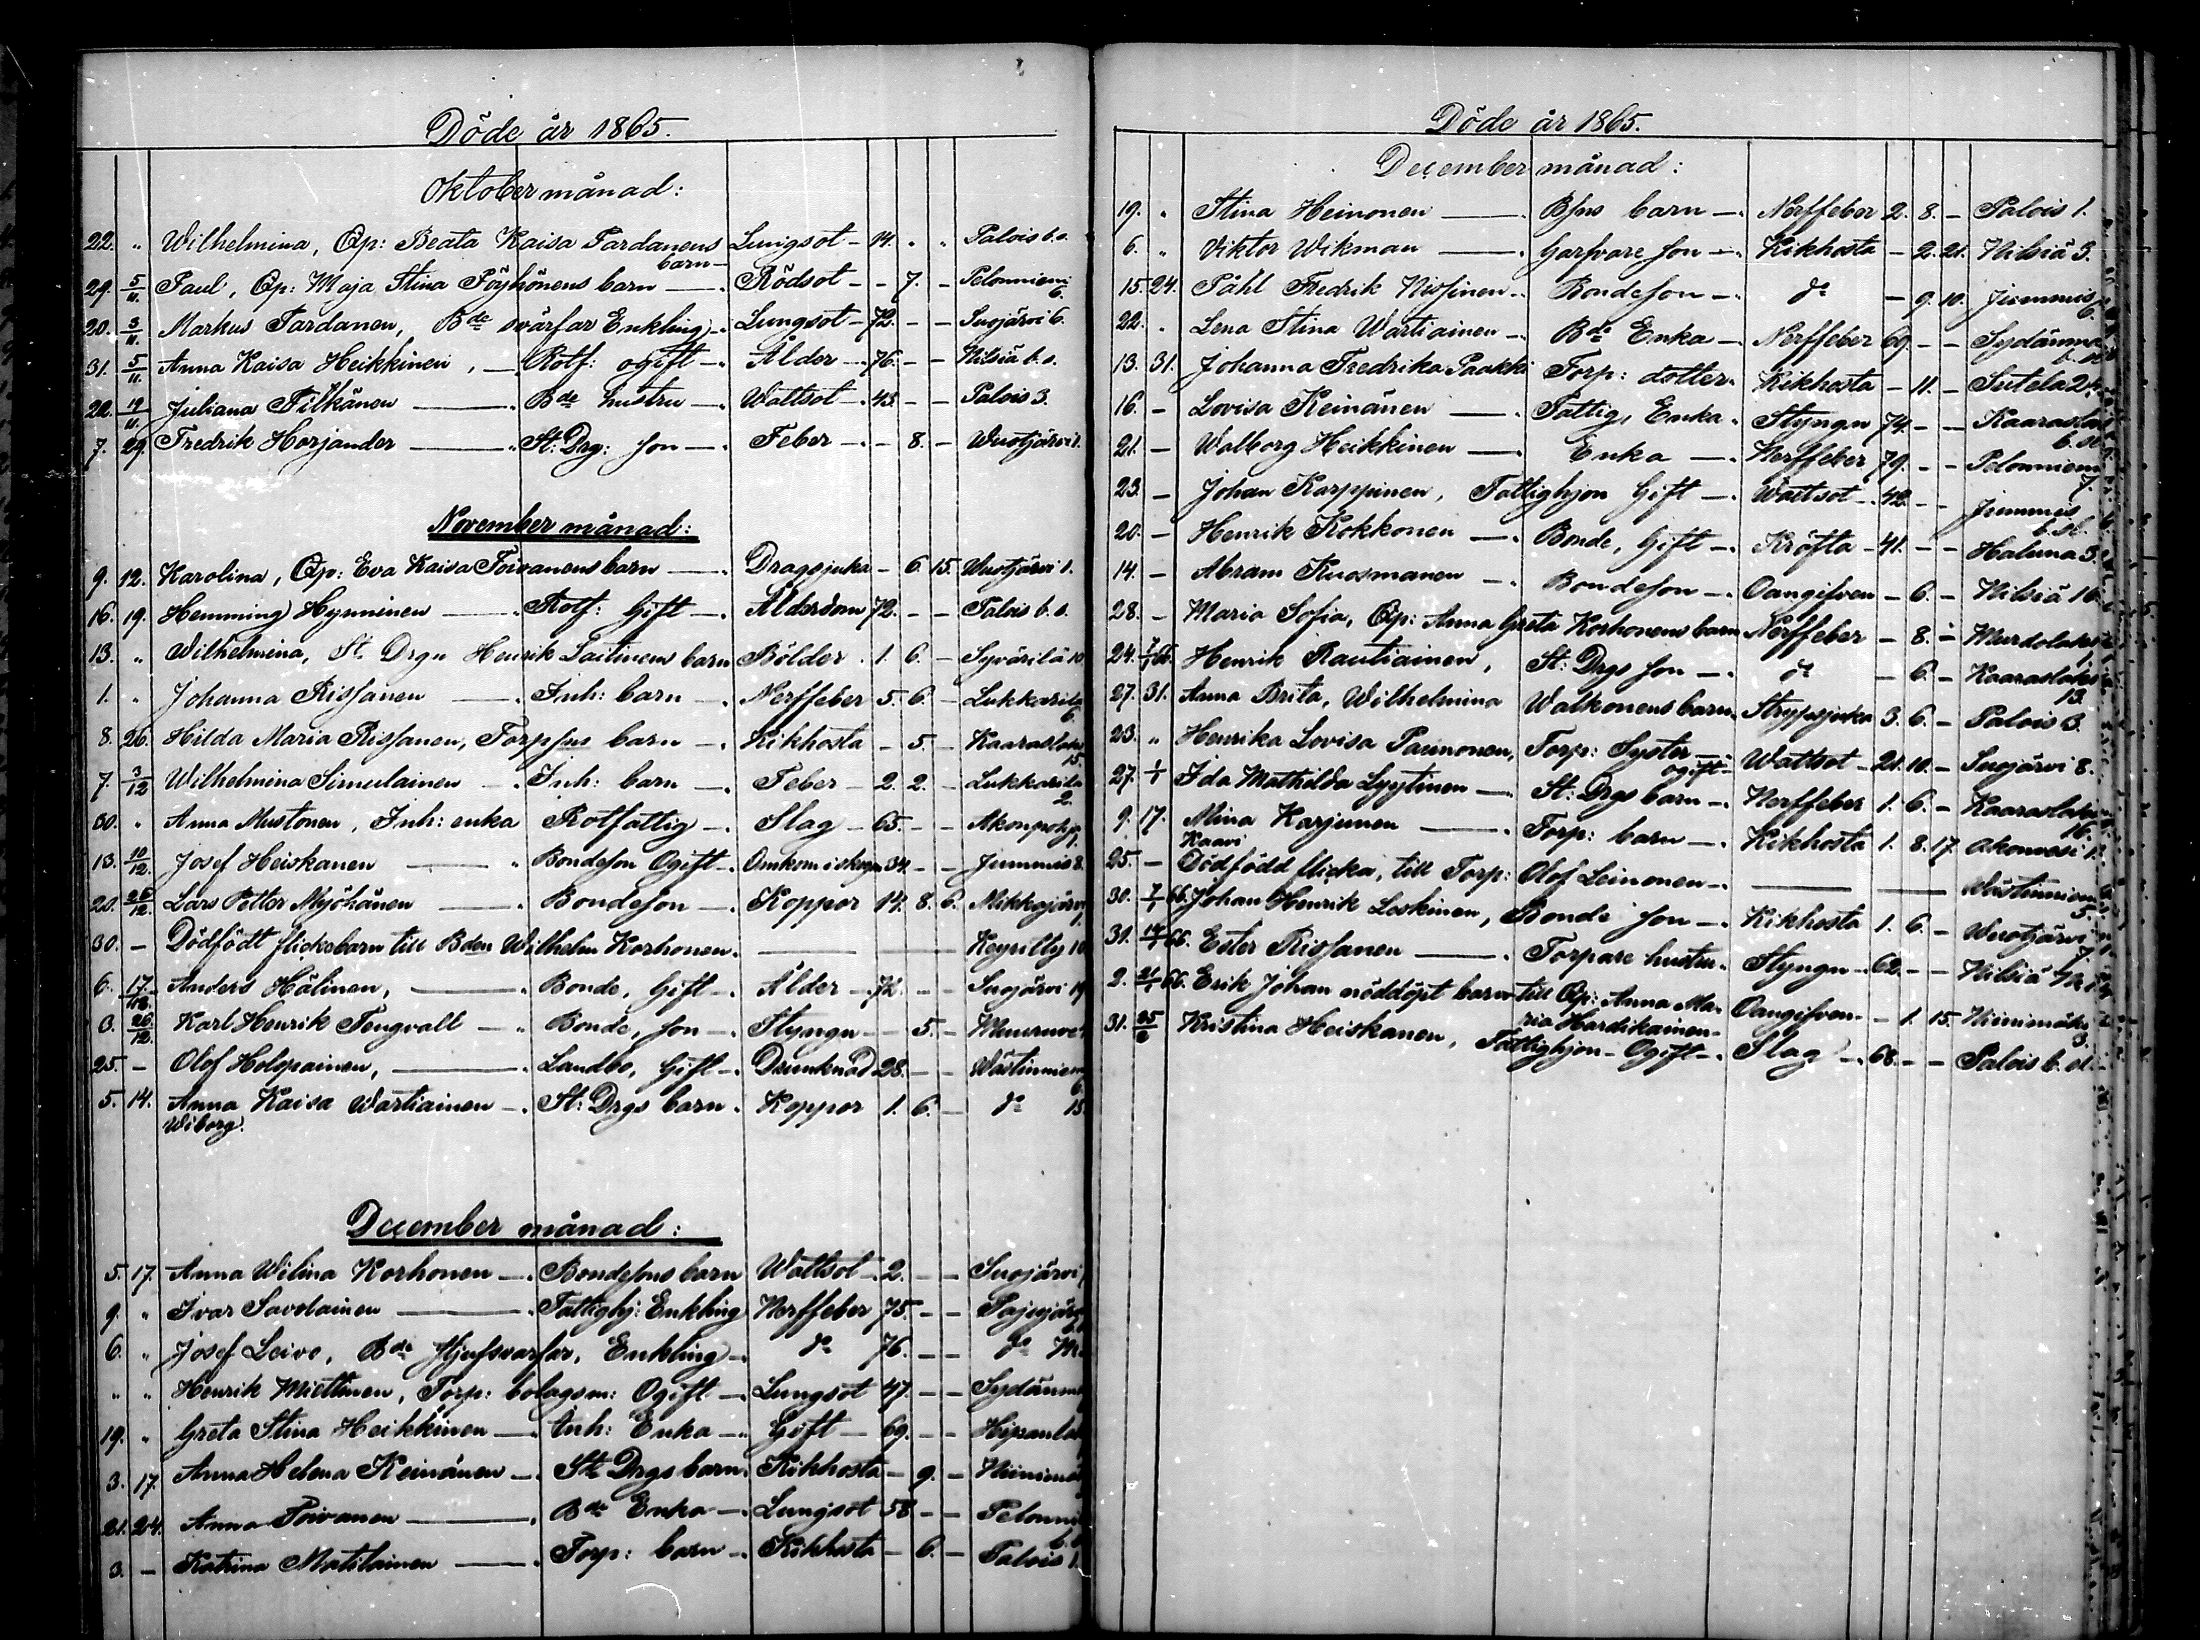 Döde år 1865.
Oktober månad:
22. " Wilhelmina, Qp: Beata Kaisa Pardanens barn Lungsot 14. " " Palois b. s.
29. 5/11 Paul, Qp: Maja Stina Pöyhönens barn Rödsot - 7. - Pelonniemi 6.
20. 5/11 Markus Tardanen, Bde svärfar Enkling Lungsot 72. - - Suojärvi 6.
31. 5/11 Anna Kaisa Heikkinen, Rotf: ogift Ålder 76. - - Nilsiä b. s.
22. 19/11 Juliana Pilkänen Bde hustru Wattsot 43. - - Palois 3.
7. 29. Fredrik Horjander St: Drg: son Feber - 8. - Wuotjärvi 1.
November månad:
9. 12. Karolina, Qp: Eva Kaisa Toivanens barn Dragsjuka - 6. 15. Wuotjärvi 1.
16. 19. Hemming Hyninen Rotf: Gift Ålderdom 72. - - Palois b. s.
13. " Wilhelmina, St. Drgn Henrik Laitinens barn Bölder 1. 6. - Syvärilä 10
1. " Johanna Rissanen Inh: barn Nerffeber 5. 6. - Lukkarila 6.
8. 26. Hilda Maria Rissanen, Torpsns barn Kikhosta - 5. - Kaaraslaks 15.
7. 3/12 Wilhelmina Simulainen Inh: barn Feber 2. 2. - Lukkarila 2.
30. " Anna Mustonen, Inh: enka Rotfattig Slag 65. - - Akonpohja
13. 10/12 Josef Heiskanen Bondeson Ogift Omkom i skogen 34. - - Jummis 8.
20. 26/12 Lars Petter Myöhänen Bondeson Koppor 14. 8. 6. Mikkajärvi 1.
30. - Dödfödt flickebarn till Bden Wilhelm Korhonen. Keyritty 10
6. 17/12 Anders Hälinen, Bonde, Gift Ålder 72. - - Suojärvi 19
3. 26/12 Karl Henrik Tengvall Bonde, son Styngn - 5. - Muuruve
25. - Olof Holopainen, Landbo, Gift Drunknad 28. - - Wästinniem 6.
5. 14. Anna Kaisa Wartiainen St: Drgs barn Koppor 1. 6. - do 15.
Wiborg.
December månad:
5. 17. Anna Wilina Korhonen Bondesons barn Wattsot 2. - - Suojärvi
9. " Ivar Savolainen Fattighj: Enkling Nerffeber 75. - - Pajujärv
6. " Josef Leivo, Bde Styfsvärfar, Enkling do 76. - - do
" " Henrik Miettinen, Torp: bolagsm: Ogift Lungsot 47. - - Sydänma
19. " Greta Stina Heikkinen Inh: Enka Gift 69. - - Hipanlah
3. 17. Anna Helena Keinänen St: Drgs barn Kikhosta - 9. - Niinimä
21. 24. Anna Toivanen Bde Enka Lungsot 58 - - Pelonni
3. - Katrina Matilainen Torp: barn Kikhosta - 6. - Palois 1.
Döde år 1865.
December månad:
19. " Stina Heinonen Bsns barn Nerffeber 2. 8. - Palois 1.
6. " Viktor Wikman Garfvare son Kikhosta - 2. 21. Nilsiä 3.
15. 24. Påhl Fredrik Nissinen Bondeson do - 9. 10. Jummis 6.
22. " Lena Stina Wartiainen Bde Enka Nerffeber 69. - - Sydänma
13. 31. Johanna Fredrika Paakki Torp: dotter Kikhosta - 11. - Sutela 2.
16. - Lovisa Keinänen Fattig, Enka Styngn 74. - - Kaaraslaks b. st.
21. - Walborg Heikkinen Enka Nerffeber 79. - - Pelonniem 7.
23. - Johan Karppinen, Fattighjon Gift Wattsot 42. - - Jummis b. st.
20. - Henrik Kokkonen Bonde, Gift Kräfta 41. - - Haluna 3.
14. - Abram Kuosmanen Bondeson Oangifven - 6. - Nilsiä 16.
28. - Maria Sofia, Qp: Anna Greta Korhonens barn Nerffeber - 8. - Murdolaks
24. 7/1 66. Henrik Rautiainen, St: Drgs son do - 6. - Kaaraslaks 13.
27. 31. Anna Brita, Wilhelmina Walkonens barn Strypsjuka 3. 6. - Palois 3.
23. " Henrika Lovisa Paunonen, Torp: Syster ogift Wattsot 21. 10. - Suojärvi 8.
27. 1/1 Ida Mathilda Lyytinen St: Drgs barn Nerffeber 1. 6. - Kaaraslaks 16.
9. 17. Mina Karjunen Torp: barn Kikhosta 1. 8. 17. Akonvesi 1.
Kaavi
25. - Dödfödd flicka, till Torp: Olof Leinonen Wästinniem 5.
30. 7/1 66. Johan Henrik Leskinen, Bonde son Kikhosta 1. 6. - Wuotjärvi 7.
31. 14/1 66. Ester Rissanen Torpare hustru Styngn 62. - - Nilsiä
2. 21/1 66. Erik Johan nöddöpt barn till Qp: Anna Maria Hardikainen Oangifven - 1. 15. Niinimäki 3.
31. 25/2 Kristina Heiskanen, Fattighjon Ogift Slag 68. - - Palois b. st.